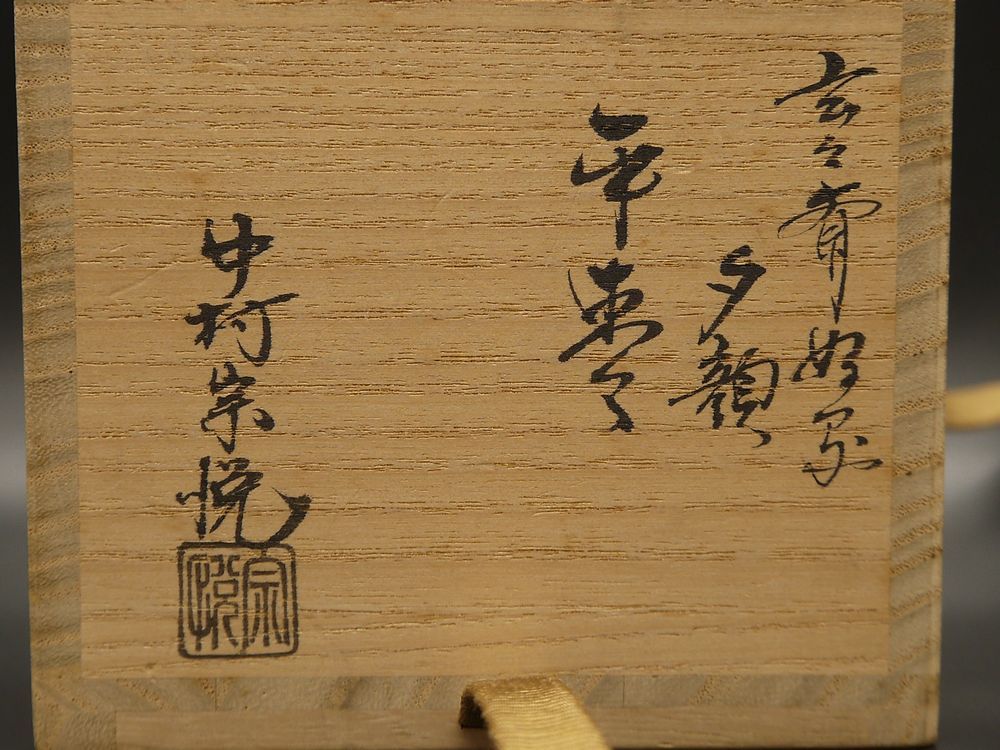 玄々斎好写
夕顔
平棗
中村宗悦
宗悦